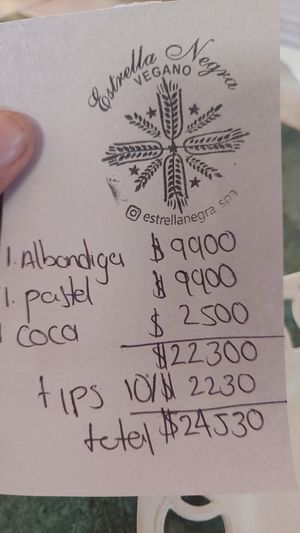 Estrella Negra
VEGANO
estrellanegra_spa
1. Albondiga $ 9900
1. pastel $ 9900
1 coca $ 2500
$22.300
tips 10% $ 2230
total $24.530